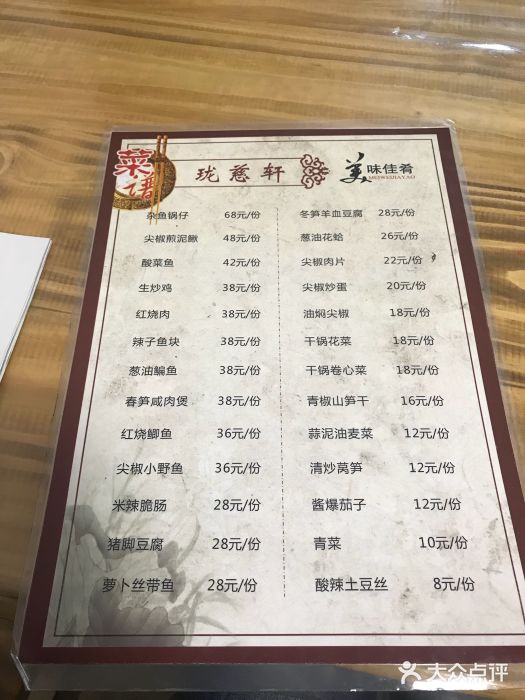 菜谱
珑慈轩
美味佳肴
MEIWEIJIAYAO
杂鱼锅仔 68元/份
尖椒煎泥鳅 48元/份
酸菜鱼 42元/份
生炒鸡 38元/份
红烧肉 38元/份
辣子鱼块 38元/份
葱油鳊鱼 38元/份
春笋咸肉煲 38元/份
红烧鲫鱼 36元/份
尖椒小野鱼 36元/份
米辣脆肠 28元/份
猪脚豆腐 28元/份
萝卜丝带鱼 28元/份
冬笋羊血豆腐 28元/份
葱油花蛤 26元/份
尖椒肉片 22元/份
尖椒炒蛋 20元/份
油焖尖椒 18元/份
干锅花菜 18元/份
干锅卷心菜 18元/份
青椒山笋干 16元/份
蒜泥油麦菜 12元/份
清炒莴笋 12元/份
酱爆茄子 12元/份
青菜 10元/份
酸辣土豆丝 8元/份
大众点评